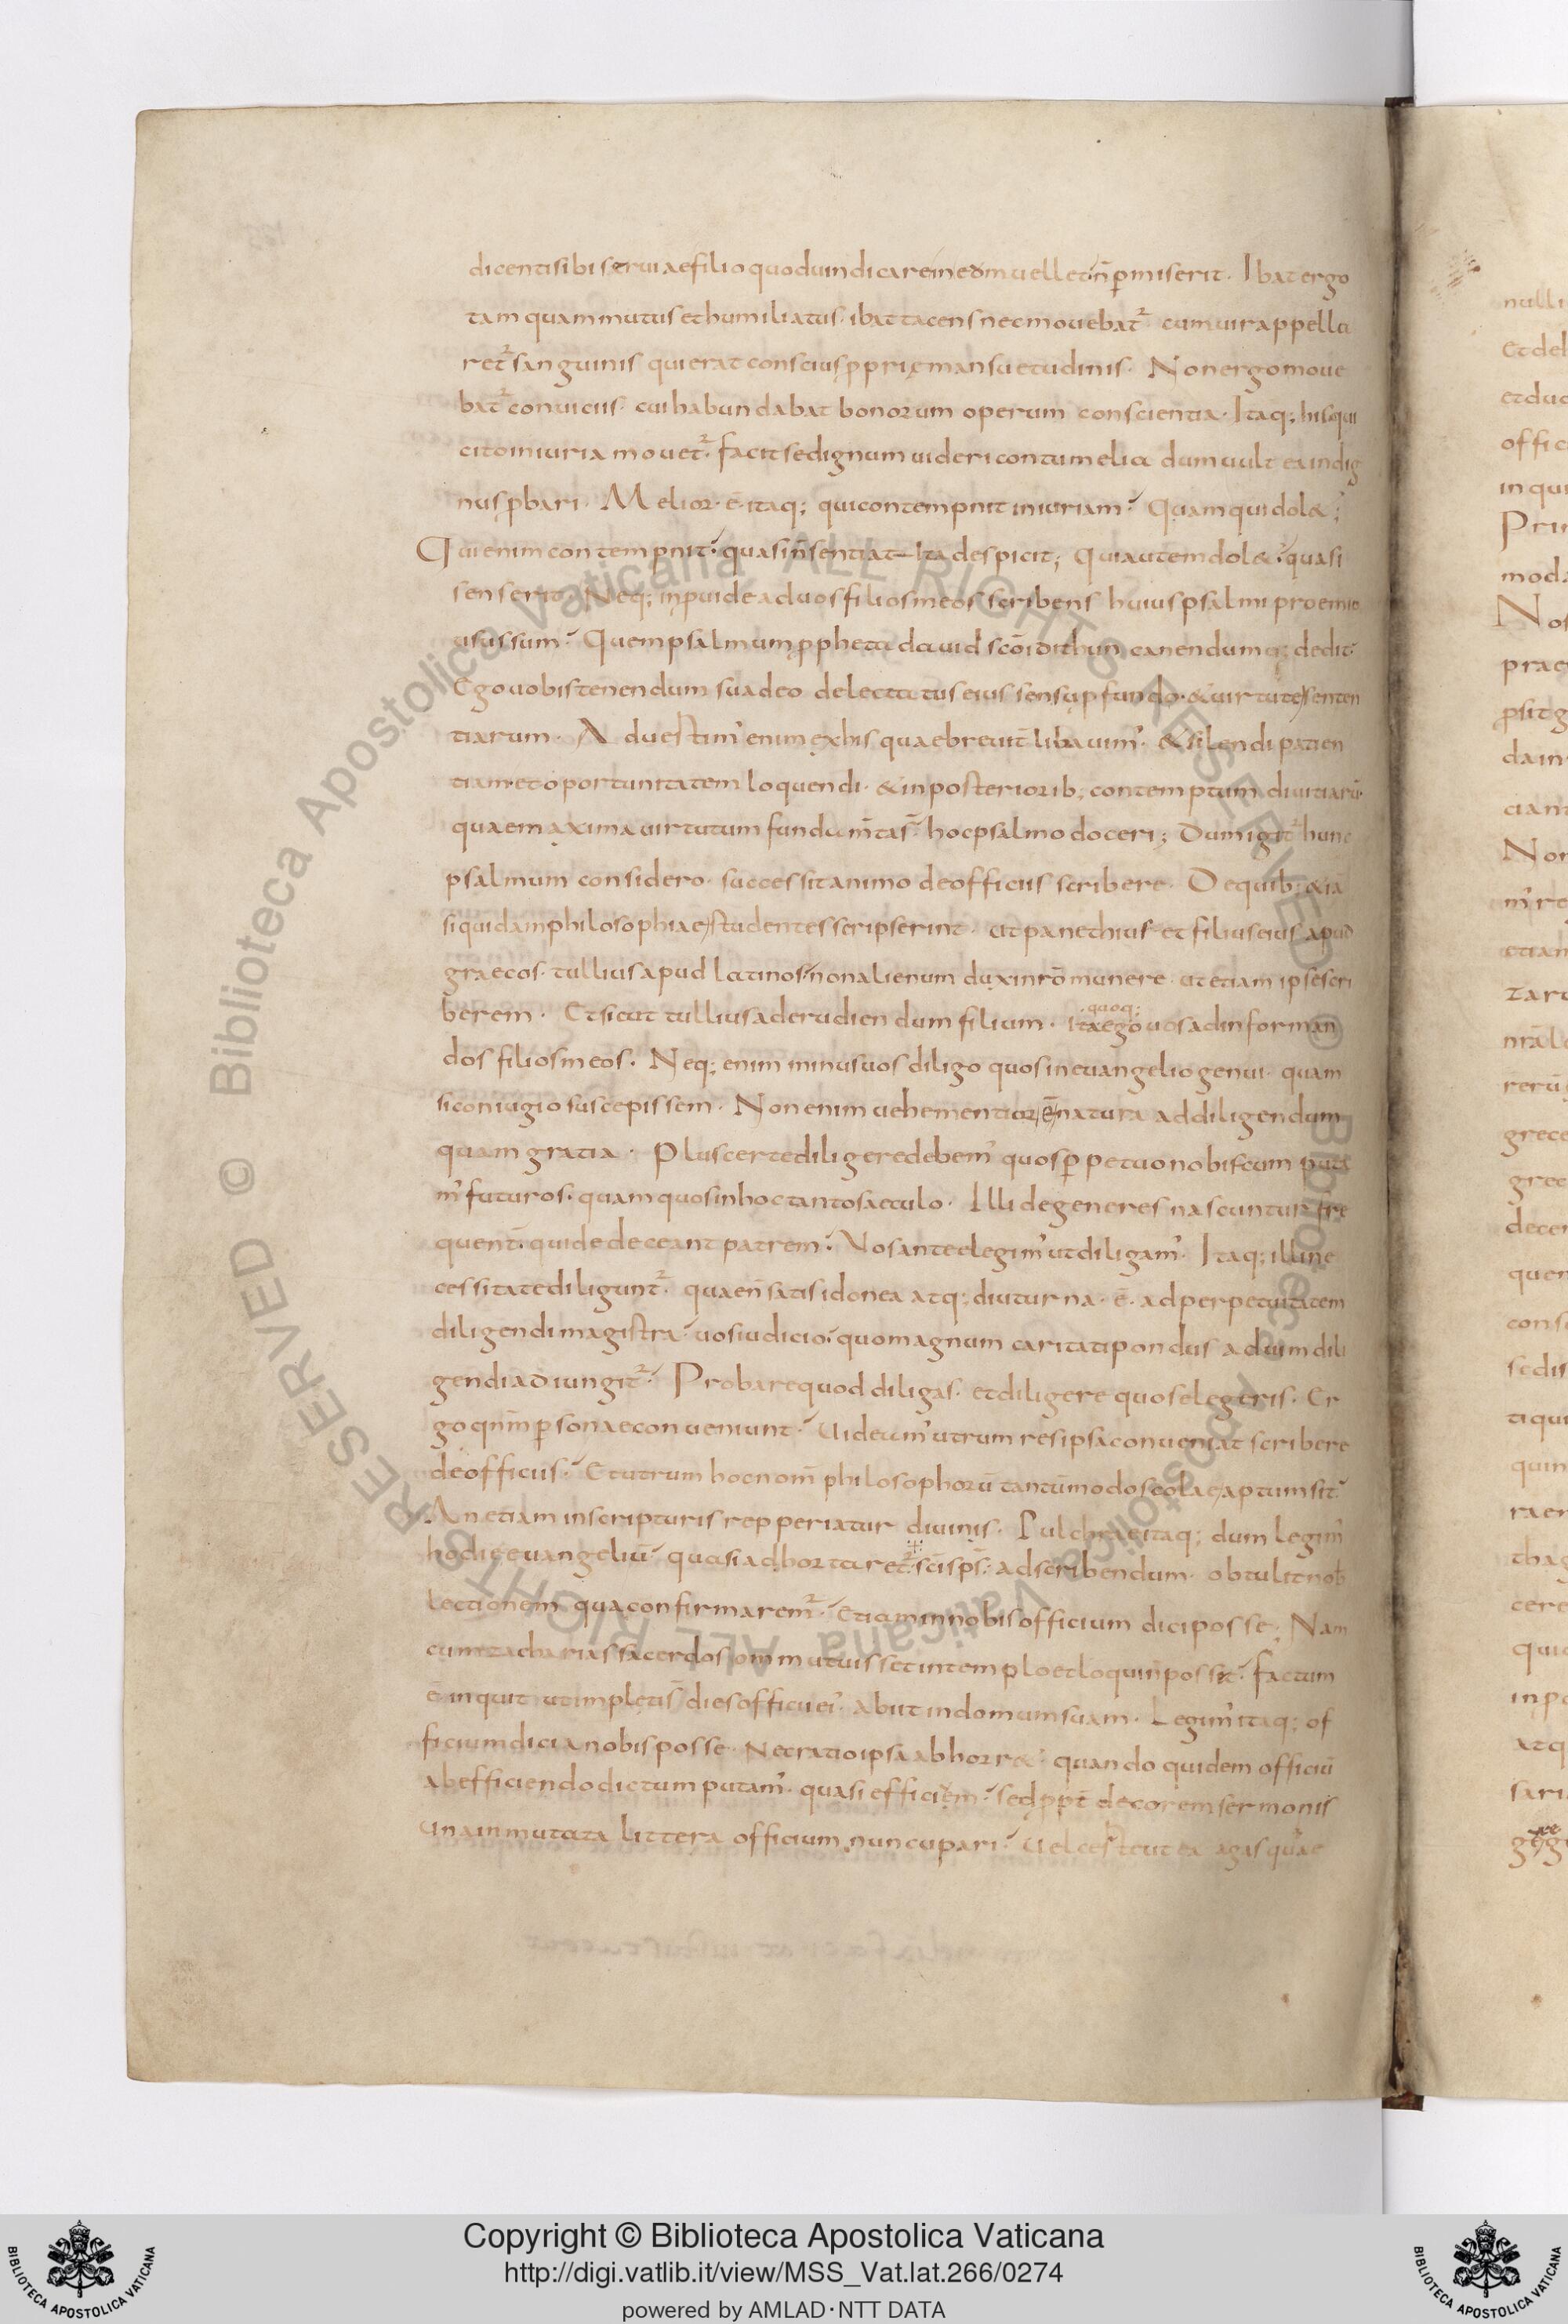 dicenti sibi seruiae filio quod uindicare in eum uellet n̄ p̄miserit. Ibat ergo
tamquam mutus et humiliatus. ibat tacens nec mouebat᷑ cum uir appella
ret᷑ sanguinis qui erat conscius ꝓprię mansuetudinis. Non ergo moue
bat᷑ conuiciis. cui habundabat bonorum operum conscientia. Itaq; his qui
cito iniuria mouet᷑. facit se dignum uideri contumelia dum uult ea indig
nus ꝓbari. Melior. ē. itaq; qui contempnit iniuriam. Quam qui dol&;
Qui enim contempnit. quasi n̄ sentiat ita despicit; Qui autem dol&. quasi
senserit. Neq; inꝓuide ad uos filios meos scribens huius psalmi proemio
usus sum. Quem psalmum ꝓpheta dauid sc̄o idithun canendumq; dedit.
Ego uobis tenendum suadeo delectatus eius sensu ꝓfundo. & uirtute senten
tiarum. Aduertim' enim ex his quae breuit̄ libauim'. & silendi patien
tiam et oportunitatem loquendi. & in posteriorib; contemptum diuitiarū.
quae maxima uirtutum fundam̄ta s̄. hoc psalmo doceri; Dum igit᷑ hunc
psalmum considero. successit animo de officiis scribere. De quib; &iā
si quidam philosophiae studentes scripserint. ut panethius et filius eius apud
graecos. tullius apud latinos. non alienum duxi nr̄o munere. ut etiam ipse scri
berem. Et sicut tullius ad erudiendum filium. ita ego quoq; uos ad informan
dos filios meos. Neq; enim minus uos diligo quos in euangelio genui. quam
si coniugio suscepissem. Non enim uehementior ē natura ad diligendum
quam gratia. Plus certe diligere debem' quos p̱petuo nobiscum puta
m' futuros. quam quos in hoc tanto saeculo. Illi degeneres nascuntur fre
quent̄. qui dedeceant patrem. Vos ante elegim' ut diligam'. Itaq; illi ne
cessitate diligunt᷑. quae n̄ satis idonea atq; diuturna. ē. ad perpetuitatem
diligendi magistra. uos iudicio. quo magnum caritati pondus ad uim dili
gendi adiungit᷑. Probare quod diligas. et diligere quos elegeris. Er
go qn̄m p̱sonae conueniunt. Uideam' utrum res ipsa conueniat scribere
de officiis. Et utrum hoc nom̄ philosophorū tantūmodo scolae aptum sit.
An etiam in scripturis repperiatur diuinis. Pulchrae itaq; dum legim'
hodie euangeliū. quasi adhortaret᷑. sc̄s sp̄s. ad scribendum. obtulit nob̄
lectionem qua confirmarem᷑. Etiam in nobis officium dici posse; Nam
cum zacharias sacerdos om̄mutuisset in templo et loqui n̄ possit. factum
ē inquit ut impleti s̄ dies officii ei'. abiit in domum suam. Legim' itaq; of
ficium dici a nobis posse. Nec ratio ipsa abhorr&. quando quidem officiū
ab efficiendo dictum putam'. quasi efficiem. sed ꝓpt̄ decorem sermonis
una inmutata littera officium nuncupari. Uel certe ut ea agas quae
Copyright © Biblioteca Apostolica Vaticana
http://digi.vatlib.it/view/MSS_Vat.lat.266/0274
powered by AMLAD·NTT DATA